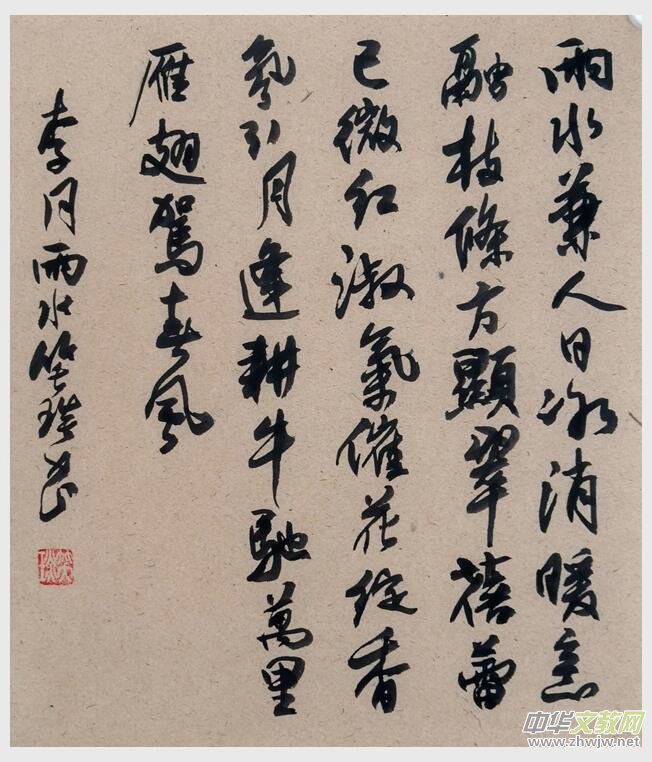 雨水兼人日冰消暖意
融枝條方顯翠蓓蕾
已微紅淑氣催花綻香
氛引月逢耕牛馳萬里
雁翅駕春風
李月雨水
中华文教网
www.zhwjw.net